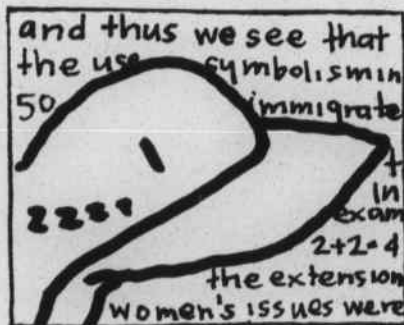 and thus we see that
the use symbolism in
50 immigrate
t
in
exam
2+2=4
the extension
women's issues were
zzzz